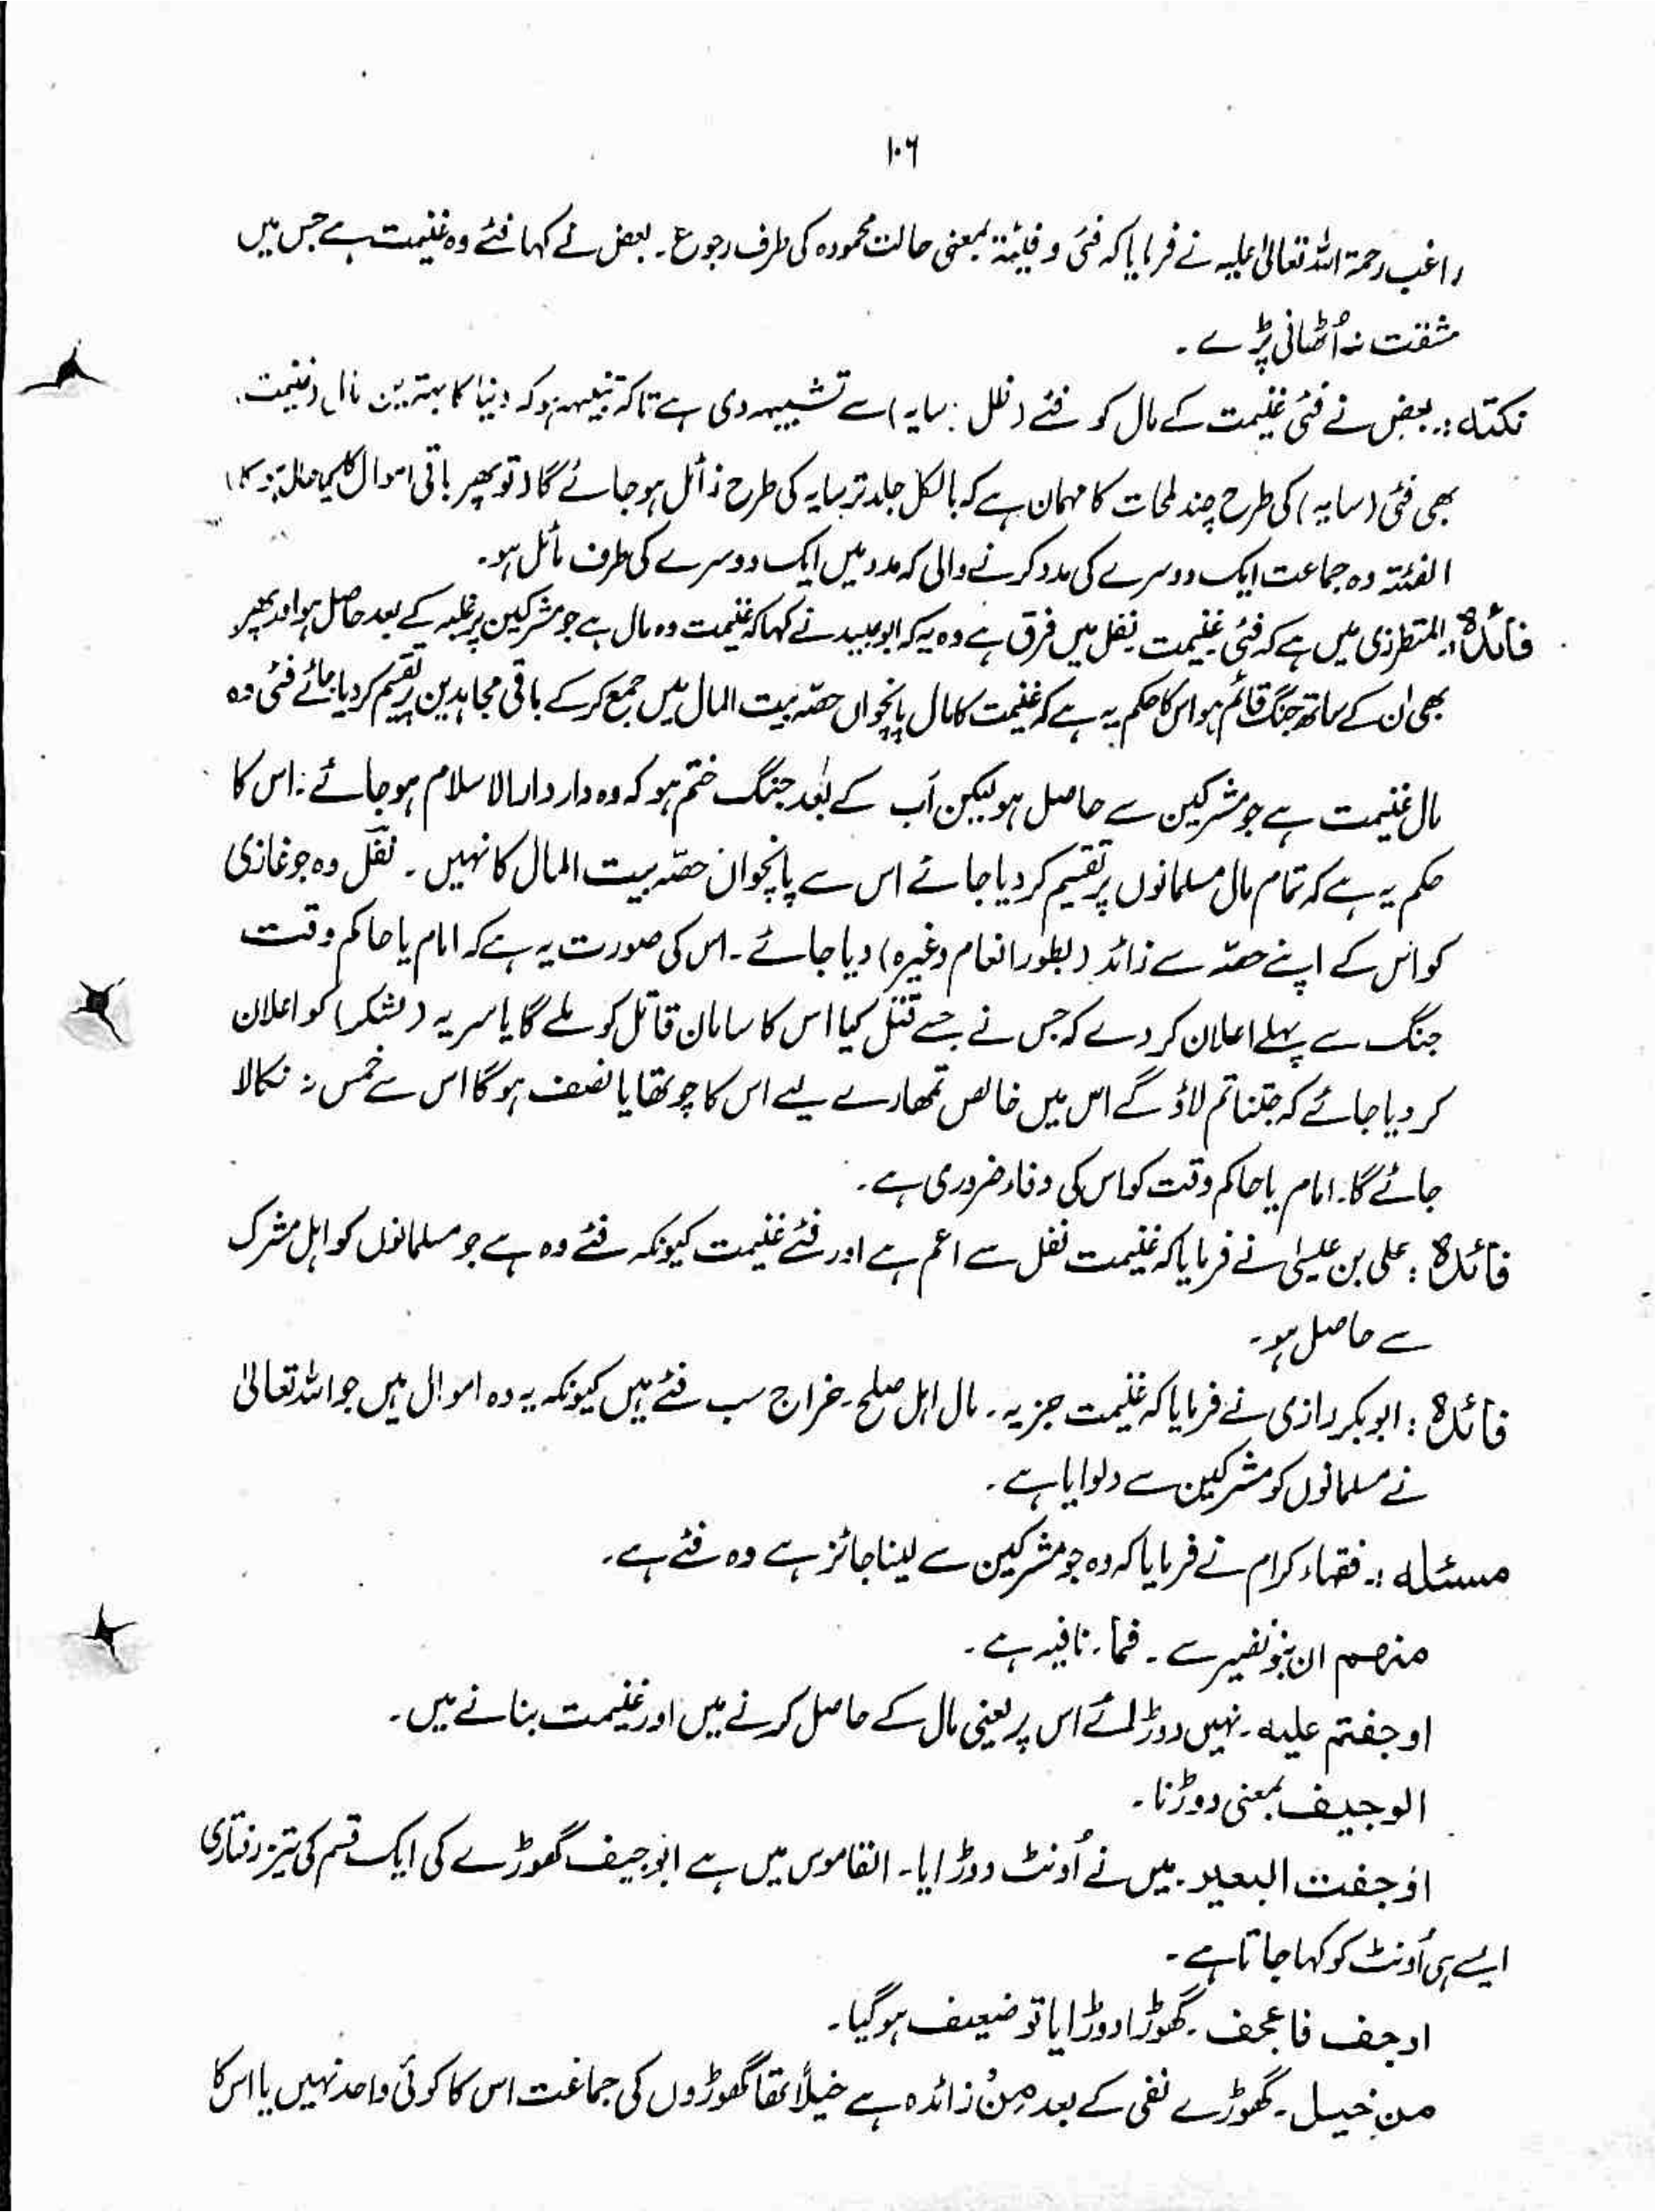 ۱۰۶
راغب رحمۃ اللہ تعالیٰ علیہ نے فرمایا کہ فئی و فیئۃ بمعنی حالت محمودہ کی طرف رجوع ۔ بعض نے کہا فئے وہ غنیمت ہے جس میں
مشقت نہ اُٹھانی پڑے ۔
نکتہ :۔ بعض نے فئی غنیمت کے مال کو فئے (ظل : سایہ) سے تشبیہہ دی ہے تاکہ تنبیہہ ہو کہ دنیا کا بہترین مال (غنیمت)
بھی فئی (سایہ) کی طرح چند لمحات کا مہمان ہے کہ بالکل جلد تر سایہ کی طرح زائل ہو جائے گا (تو پھر باقی اموال کا کیا حال ہو گا)
الفئتہ وہ جماعت ایک دوسرے کی مدد کرنے والی کہ مدد میں ایک دوسرے کی طرف مائل ہو ۔
فائدہ :۔ المتطرزی میں ہے کہ فئی غنیمت نفل میں فرق ہے وہ یہ کہ ابو عبید نے کہا کہ غنیمت وہ مال ہے جو مشرکین پر غلبہ کے بعد حاصل ہو اور پھر
بھی ان کے ساتھ جنگ قائم ہو اس کا حکم یہ ہے کہ غنیمت کا مال پانچواں حصہ بیت المال میں جمع کر کے باقی مجاہدین پر تقسیم کر دیا جائے فئی وہ
مال غنیمت ہے جو مشرکین سے حاصل ہو لیکن اب کے بعد جنگ ختم ہو کہ وہ دار دارالاسلام ہو جائے : اس کا
حکم یہ ہے کہ تمام مال مسلمانوں پر تقسیم کر دیا جائے اس سے پانچوان حصہ بیت المال کا نہیں ۔ نفل وہ جو غازی
کو اس کے اپنے حصہ سے زائد (بطور انعام وغیرہ) دیا جائے ۔ اس کی صورت یہ ہے کہ امام یا حاکم وقت
جنگ سے پہلے اعلان کر دے کہ جس نے جسے قتل کیا اس کا سامان قاتل کو ملے گا یا سریہ (لشکر) کو اعلان
کر دیا جائے کہ جتنا تم لاؤ گے اس میں خالص تمھارے لیے اس کا چوتھا یا نصف ہو گا اس سے خمس نہ نکالا
جائے گا ۔ امام یا حاکم وقت کو اس کی وفاء ضروری ہے ۔
فائدہ : علی بن عیسیٰ نے فرمایا کہ غنیمت نفل سے اعم ہے اور فئے غنیمت کیونکہ فئے وہ ہے جو مسلمانوں کو اہل مشرک
سے حاصل ہو ۔
فائدہ : ابوبکر رازی نے فرمایا کہ غنیمت جزیہ ۔ مال اہل صلح ۔ خراج سب فئے ہیں کیونکہ یہ وہ اموال ہیں جو اللہ تعالیٰ
نے مسلمانوں کو مشرکین سے دلوایا ہے ۔
مسئلہ :۔ فقہاء کرام نے فرمایا کہ وہ جو مشرکین سے لینا جائز ہے وہ فئے ہے ۔
منھم ان بنو نضیر سے ۔ فما ۔ نافیہ ہے ۔
اوجفتم علیہ ۔ نہیں دوڑائے اس پر یعنی مال کے حاصل کرنے میں اور غنیمت بنانے میں ۔
الوجیف بمعنی دوڑنا ۔
اوجفت البعیر ۔ میں نے اُونٹ دوڑایا ۔ القاموس میں ہے الوجیف گھوڑے کی ایک قسم کی تیز رفتاری
ایسے ہی اُونٹ کو کہا جاتا ہے ۔
اوجف فاعجف ۔ گھوڑا دوڑایا تو ضعیف ہو گیا ۔
من خیل ۔ گھوڑے نفی کے بعد مِنْ زائدہ ہے خیلاً تھا گھوڑوں کی جماعت اس کا کوئی واحد نہیں یا اس کا